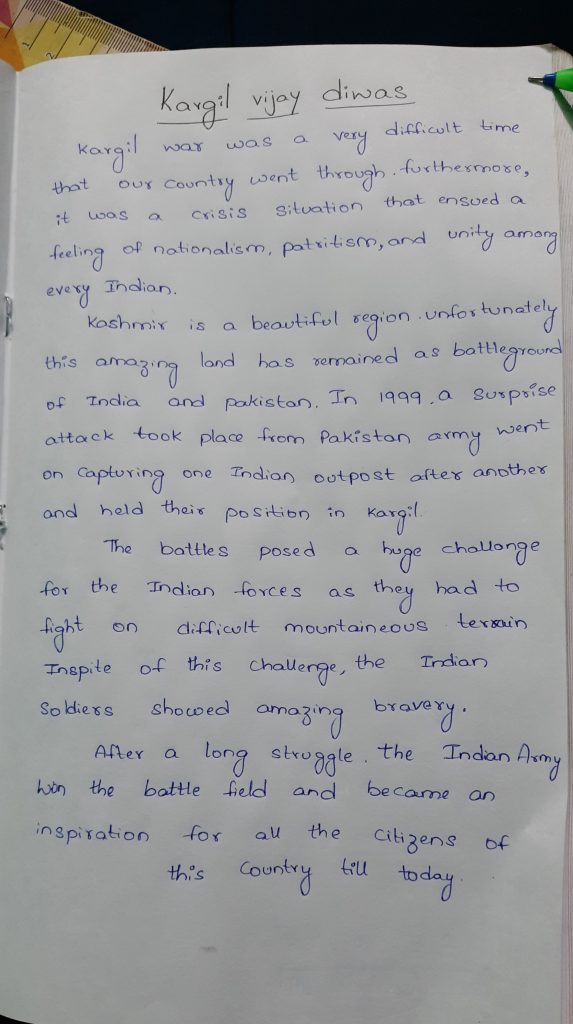 Kargil vijay diwas
Kargil war was a very difficult time
that our country went through. furthermore,
it was a crisis situation that ensued a
feeling of nationalism, patritism, and unity among
every Indian.
Kashmir is a beautiful region. unfortunately
this amazing land has remained as battleground
of India and pakistan. In 1999, a surprise
attack took place from Pakistan army went
on capturing one Indian outpost after another
and held their position in Kargil.
The battles posed a huge challange
for the Indian forces as they had to
fight on difficult mountaineous terrain
Inspite of this challenge, the Indian
Soldiers showed amazing bravery.
After a long struggle. the Indian Army
won the battle field and became an
inspiration for all the citizens of
this country till today.